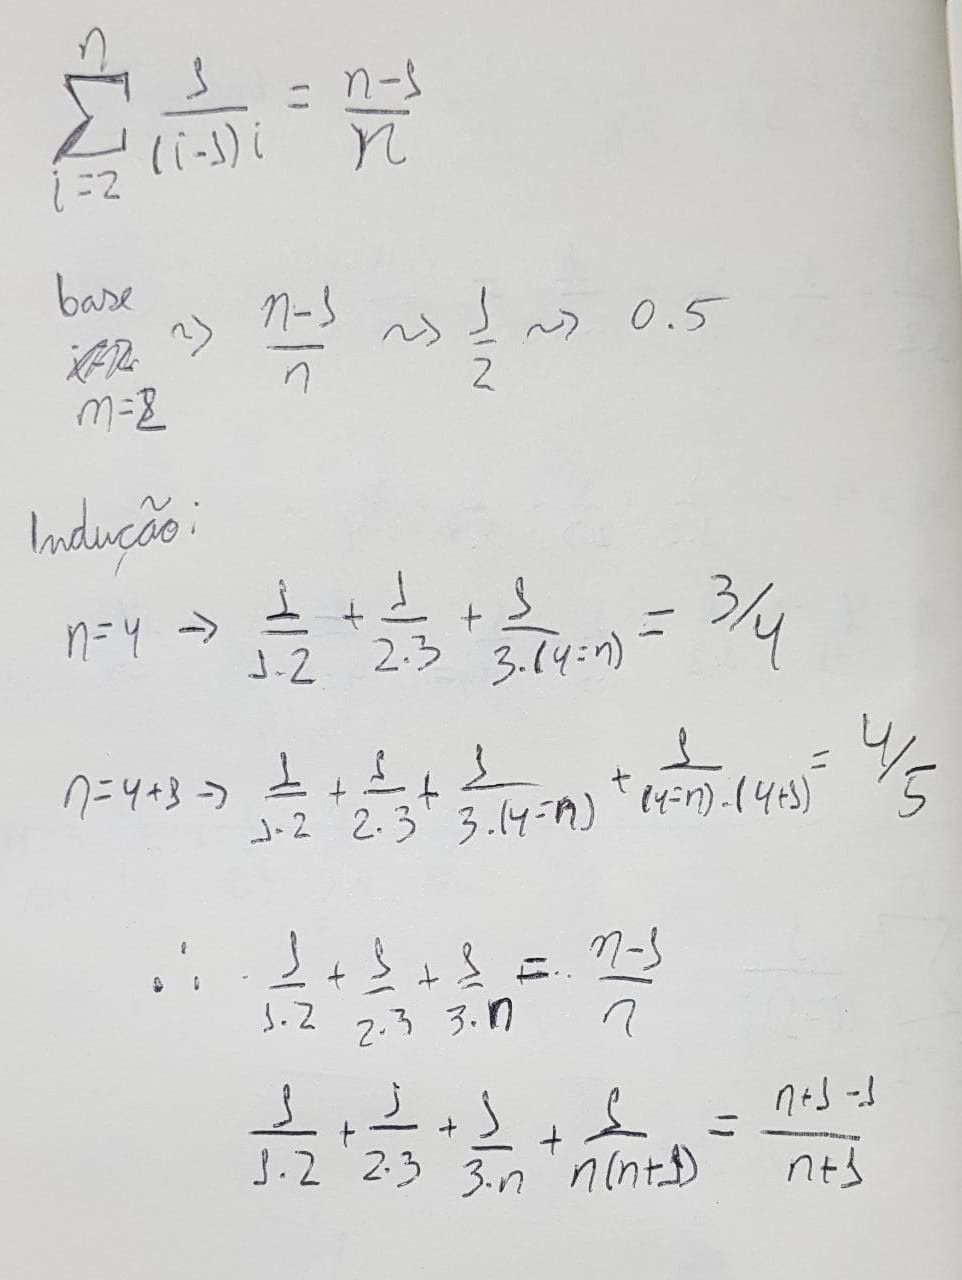 n
∑ 1/((i-1)i) = (n-1)/n
i=2
base
n=2 ~> (n-1)/n ~> 1/2 ~> 0.5
Indução:
n=4 → 1/(1.2) + 1/(2.3) + 1/(3.(4=n)) = 3/4
n=4+1 → 1/(1.2) + 1/(2.3) + 1/(3.(4=n)) + 1/((4=n).(4+1)) = 4/5
∴ 1/(1.2) + 1/(2.3) + 1/(3.n) = .. (n-1)/n
1/(1.2) + 1/(2.3) + 1/(3.n) + 1/(n(n+1)) = (n+1-1)/(n+1)